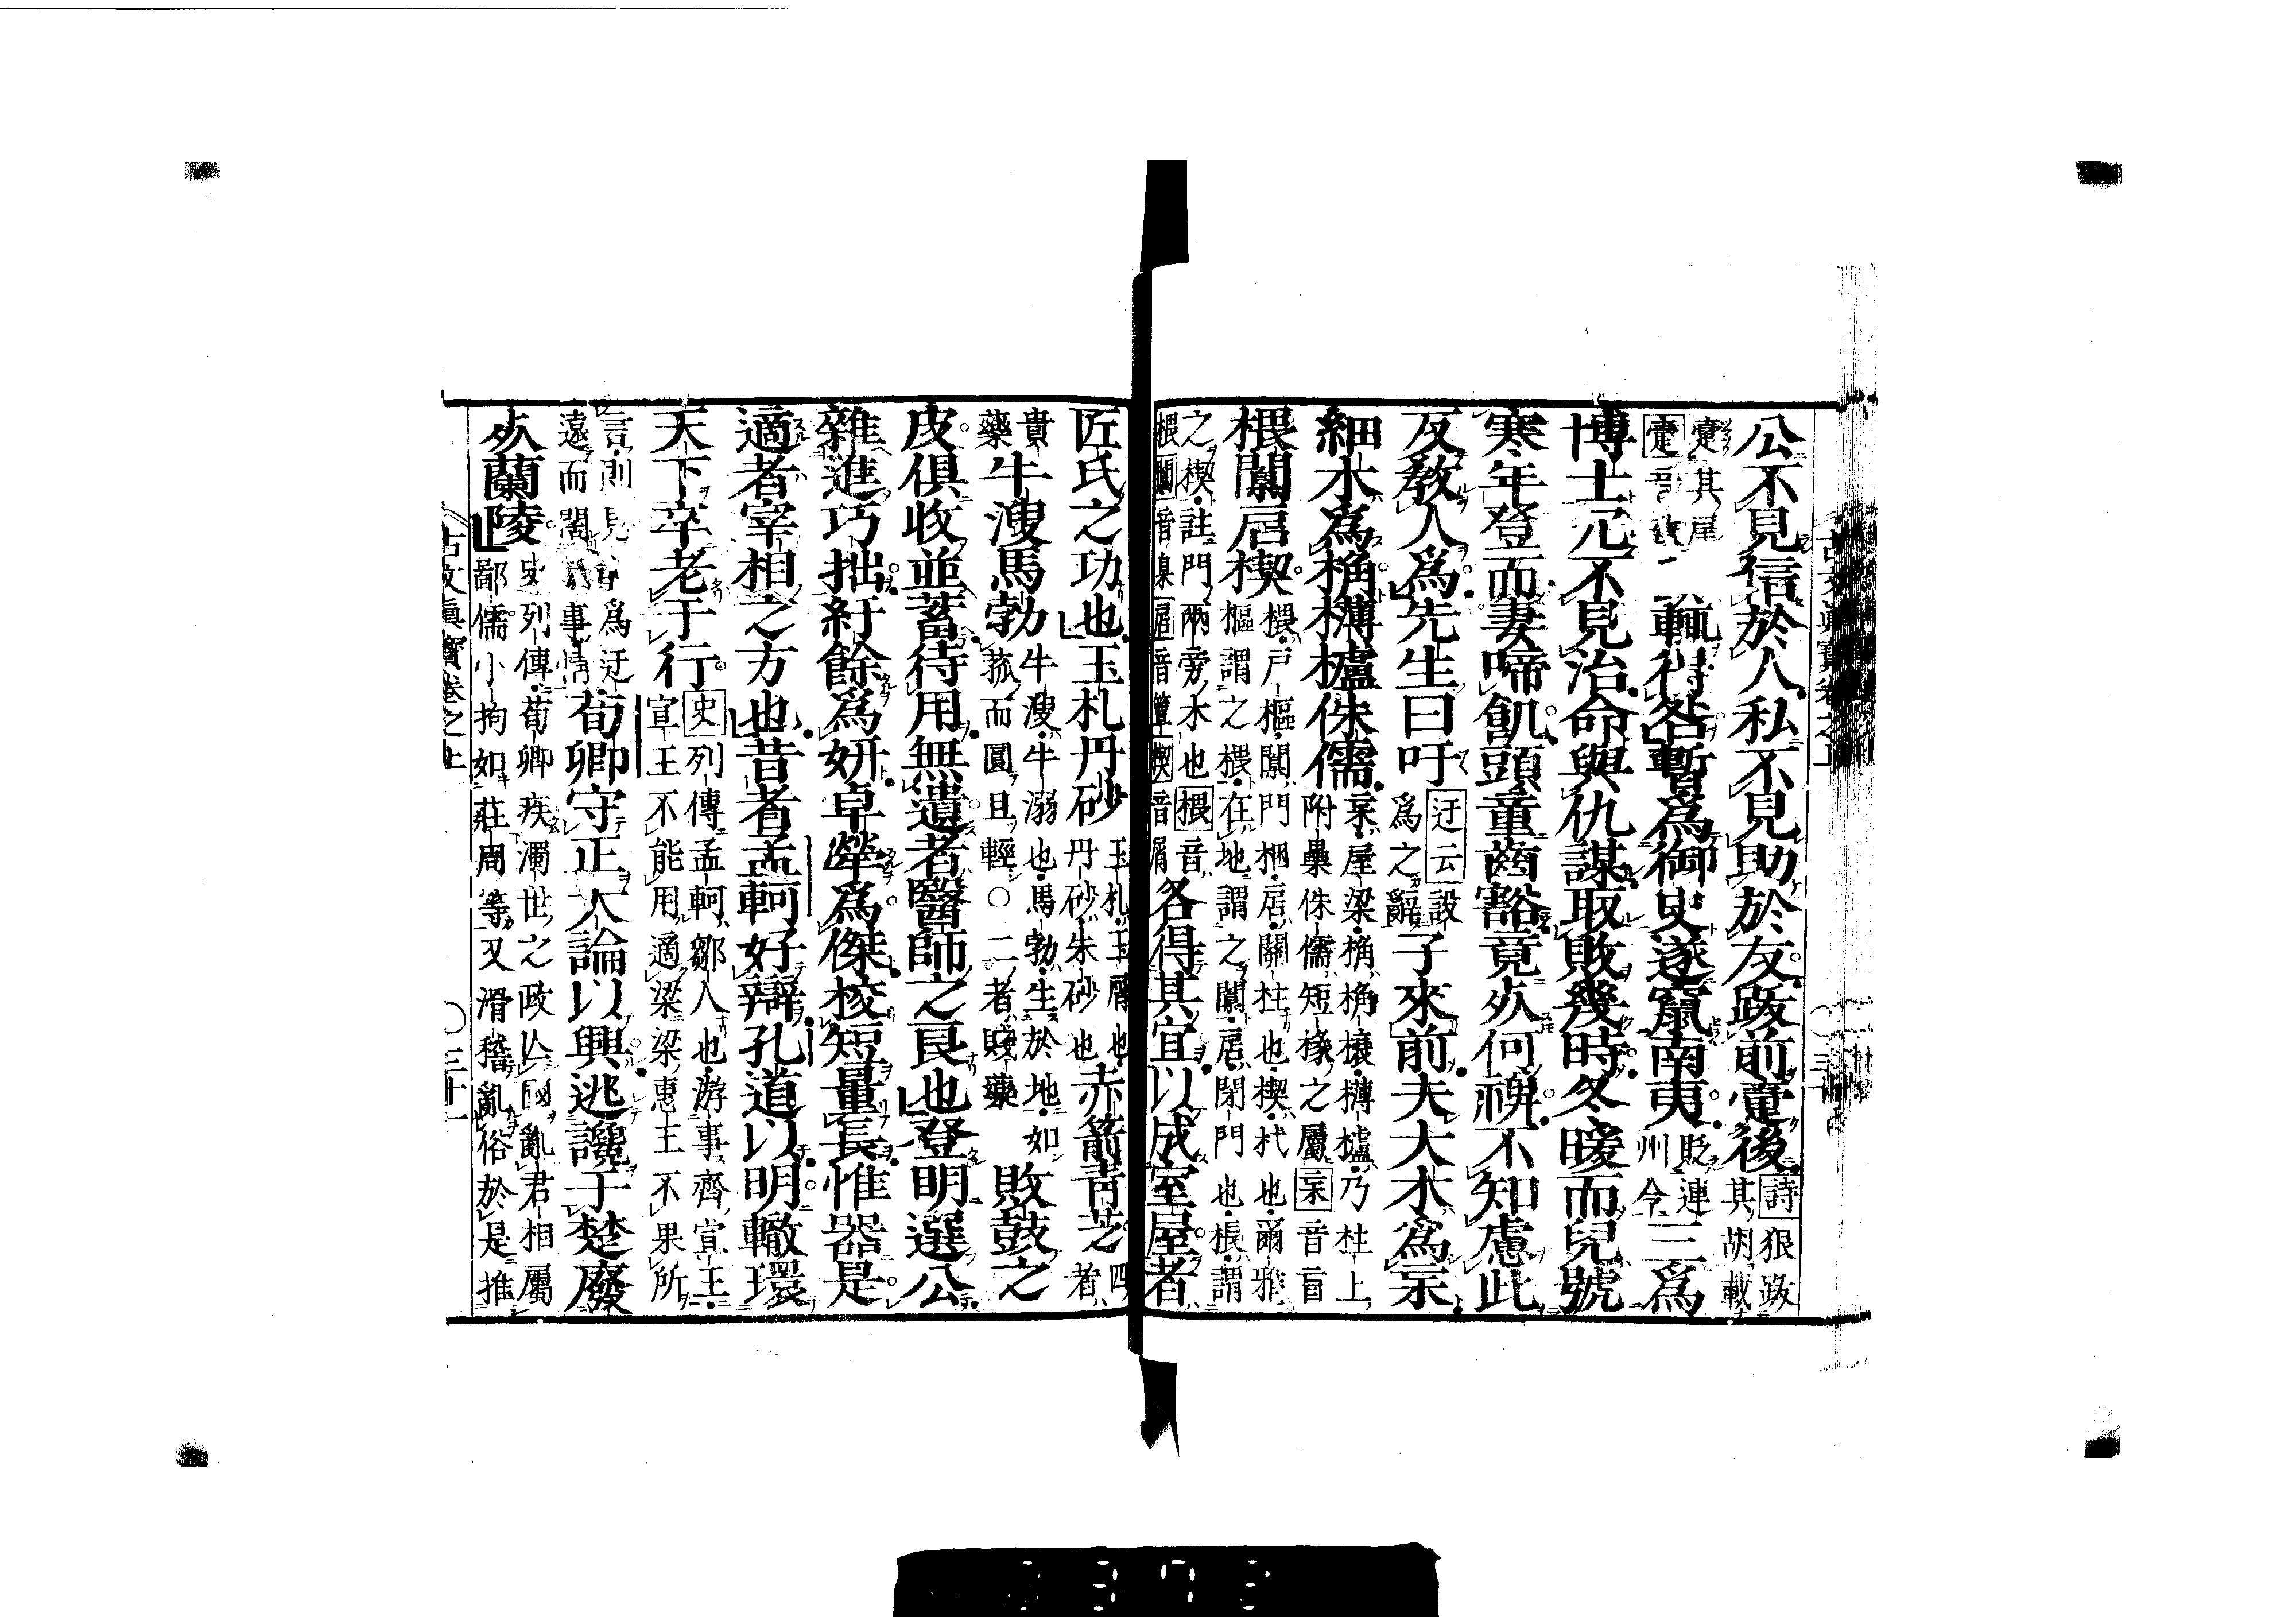 公不見信於人私不見助於友跋前疐後
詩狼跋
其胡載
疐其尾
疐音
輒得咎暫爲御史遂竄南夷
貶連
州令
三爲
博士冗不見治命與仇謀取敗幾時冬暖而兒號
寒年登而妻啼飢頭童齒豁竟死何裨不知慮此
反教人爲先生曰吁
迂云設
爲之辭
子來前夫大木爲杗
細木爲桷欂櫨侏儒
杗屋梁桷桷榱欂櫨乃柱上
附欒侏儒短椽之屬杗音盲
椳闑扂楔
椳戶樞闑門梱扂關柱也楔杙也爾雅
樞謂之椳在地謂之闑扂閉門也棖謂
之楔註門兩旁木也椳音
椳闑音臬扂音簟楔音屑
各得其宜以成室屋者
匠氏之功也玉札丹砂
玉札玉屑也
丹砂朱砂也
赤箭靑芝
四
者
貴
藥
牛溲馬勃
牛溲牛溺也馬勃生於地如
菰而圓且輕〇二者賤藥
敗鼓之
皮俱收並蓄待用無遺者醫師之良也登明選公
雜進巧拙紆餘爲妍卓犖爲傑校短量長惟器是
適者宰相之方也昔者孟軻好辯孔道以明轍環
天下卒老于行
史列傳孟軻鄒人也游事齊宣王
宣王不能用適梁梁惠王不果所
言則見以爲迂
遠而闊於事情
荀卿守正大論以興逃讒于楚廢
死蘭陵
史列傳荀卿疾濁世之政亾國亂君相屬
鄙儒小拘如莊周等又滑稽亂俗於是推
古文眞寶卷之上
〇三十一